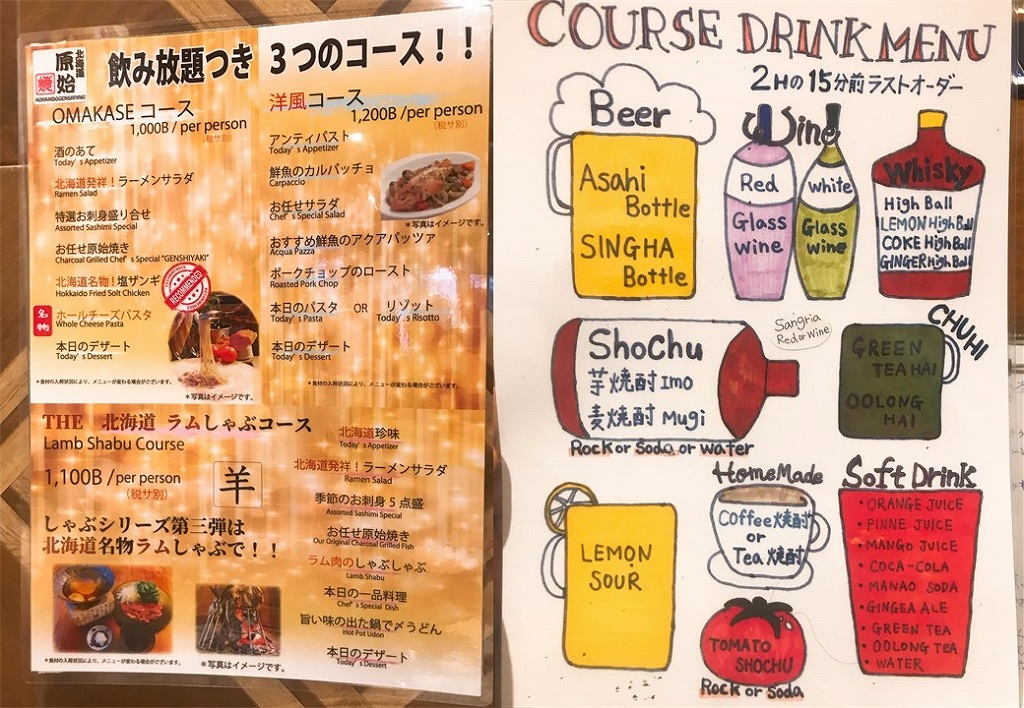 北海道
原始
焼
HOKKAIDO GENSHIYAKI
飲み放題つき 3つのコース！！
OMAKASE コース
1,000B / per person
（税サ別）
酒のあて
Today's Appetizer
北海道発祥！ラーメンサラダ
Ramen Salad
特選お刺身盛り合せ
Assorted Sashimi Special
お任せ原始焼き
Charcoal Grilled Chef's Special "GENSHIYAKI"
北海道名物！塩ザンギ
Hokkaido Fried Solt Chicken
RECOMMENDED
名物
ホールチーズパスタ
Whole Cheese Pasta
本日のデザート
Today's Dessert
＊食材の入荷状況により、メニューが変わる場合がございます。
＊写真はイメージです。
洋風コース
1,200B / per person
（税サ別）
アンティパスト
Today's Appetizer
鮮魚のカルパッチョ
Carpaccio
お任せサラダ
Chef's Special Salad
＊写真はイメージです。
おすすめ鮮魚のアクアパッツァ
Acqua Pazza
ポークチョップのロースト
Roasted Pork Chop
本日のパスタ OR リゾット
Today's Pasta Today's Risotto
本日のデザート
Today's Dessert
＊食材の入荷状況により、メニューが変わる場合がございます。
THE 北海道 ラムしゃぶコース
Lamb Shabu Course
1,100B / per person
（税サ別）
羊
しゃぶシリーズ第三弾は
北海道名物ラムしゃぶで！！
＊食材の入荷状況により、メニューが変わる場合がございます。
＊写真はイメージです。
北海道珍味
Today's Appetizer
北海道発祥！ラーメンサラダ
Ramen Salad
季節のお刺身５点盛
Assorted Sashimi Special
お任せ原始焼き
Our Original Charcoal Grilled Fish
ラム肉のしゃぶしゃぶ
Lamb Shabu
本日の一品料理
Chef's Special Dish
旨い味の出た鍋で〆うどん
Hot Pot Udon
本日のデザート
Today's Dessert
COURSE DRINK MENU
2Hの15分前ラストオーダー
Beer
Asahi
Bottle
SINGHA
Bottle
Wine
Red
Glass
wine
white
Glass
wine
Whisky
High Ball
LEMON High Ball
COKE High Ball
GINGER High Ball
Shochu
芋焼酎 Imo
麦焼酎 Mugi
Rock or Soda or water
Sangria
Red or Wine
CHUHI
GREEN
TEA HAI
OOLONG
HAI
LEMON
SOUR
HomeMade
Coffee焼酎
or
Tea 焼酎
TOMATO
SHOCHU
Rock or Soda
Soft Drink
・ORANGE JUICE
・PINNE JUICE
・MANGO JUICE
・COCA-COLA
・MANAO SODA
・GINGEA ALE
・GREEN TEA
・OOLONG TEA
・WATER